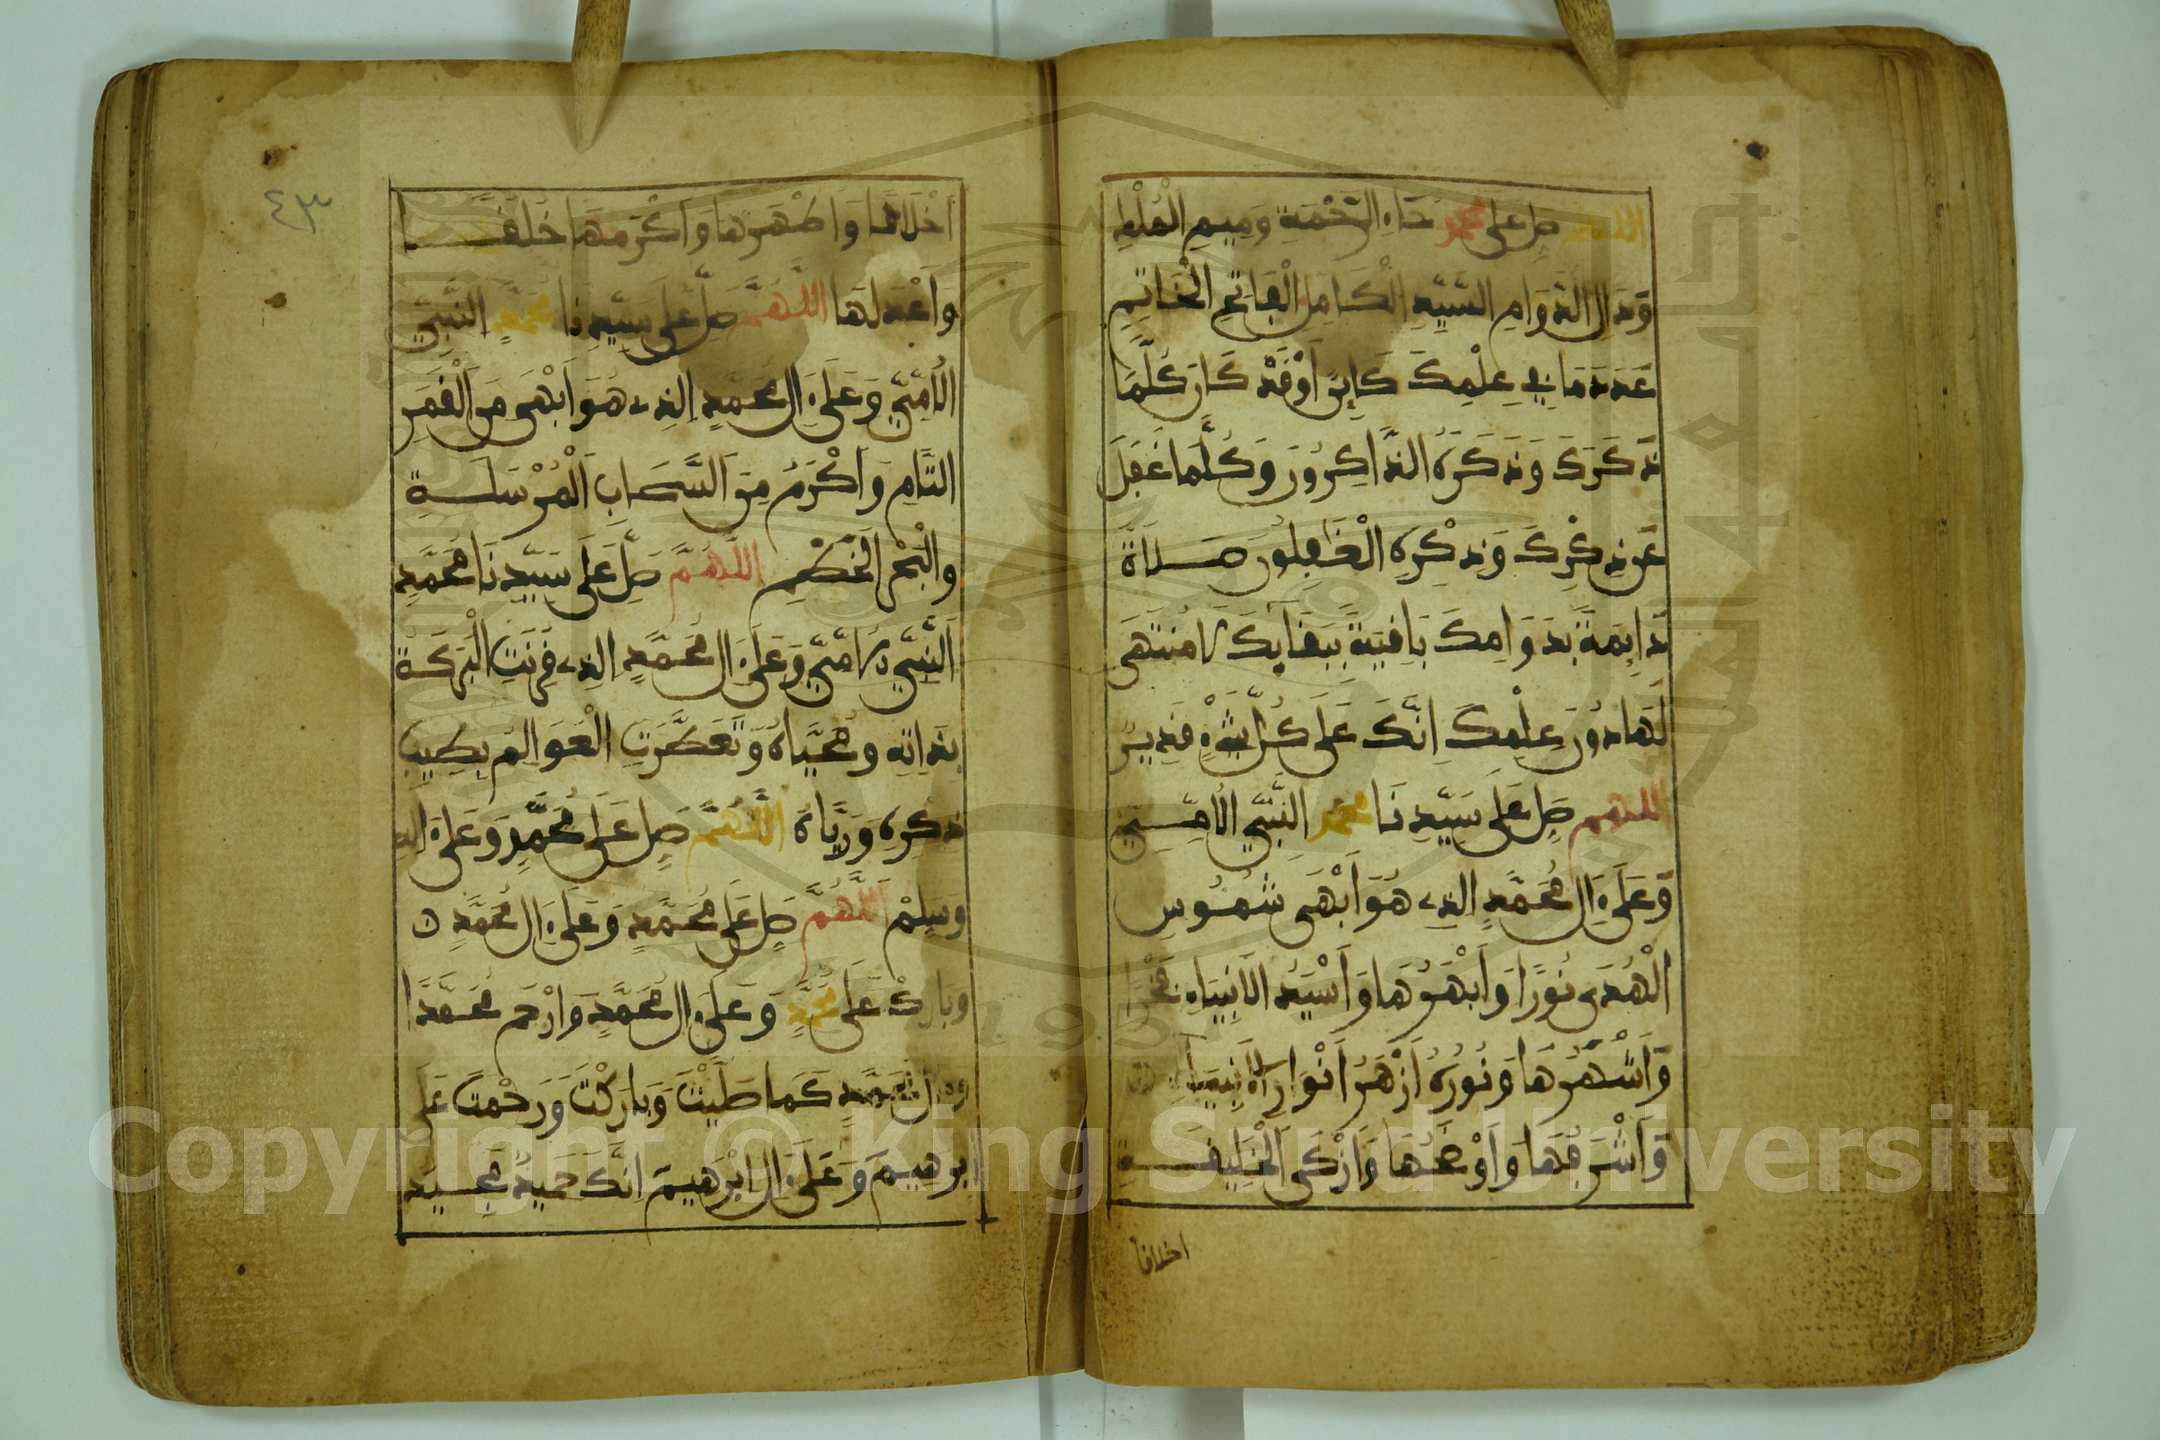 اللهم صل على محمد حاء الرحمة وميم الملك
وَدَال الدَّوَامِ السَّيِّدِ الكَامِلِ الْفَاتِحِ الْخَاتِمِ
عَدَدَ مَا فِي عِلْمِكَ كَائِنٌ أَوْ قَدْ كَانَ كُلَّمَا
ذَكَرَكَ وَذَكَرَهُ الذَّاكِرُونَ وَكُلَّمَا غَفَلَ
عَن ذِكْرِكَ وَذِكْرِهِ الْغَافِلُونَ صَلَاةً
دَايِمَةً بِدَوَامِكَ بَاقِيَةً بِبَقَايِكَ لَا مُنتَهَى
لَهَا دُونَ عِلْمِكَ اِنَّكَ عَلَى كُلِّ شَيْءٍ قَدِيرٌ
اللهم صَلِ عَلَى سَيِّدِنَا محمد النَّبِيِّ الاُمِّيِّ
وَعَلَى ءَالِ مُحَمَّدٍ الذِي هُوَ أَبْهَى شُمُوسِ
الْهُدَى نُورًا وَأَبْهَرُهَا وَأَسْيَرُ الاَنبِيَاءِ فَخْرًا
وَأَشْهَرُهَا وَنُورُهُ أَزْهَرُ أَنْوَارِ الاَنبِيَاءِ
وَأَشْرَفُهَا وَأَوْضَحُهَا وَأَزْكَى الْخَلِيقَةِ
اخلاقا
٤٣
أَخْلَاقًا وَأَطْهَرُهَا وَأَكْرَمُهَا خَلْقًا
وَأَعْدَلُهَا اللَّهُمَّ صَلِّ عَلَى سَيِّدِنَا مُحَمَّدٍ النَّبِيِّ
الاُمِّيِّ وَعَلَى ءَالِ مُحَمَّدٍ الذِي هُوَ أَبْهَى مِنَ الْقَمَرِ
التَّامِّ وَأَكْرَمُ مِنَ السَّحَابِ الْمُرْسَلَةِ
وَالْبَحْرِ الْخِضَمِّ اللَّهُمَّ صَلِّ عَلَى سَيِّدِنَا مُحَمَّدٍ
النَّبِيِّ الاُمِّيِّ وَعَلَى ءَالِ مُحَمَّدٍ الذِي قُرِنَتِ الْبَرَكَةُ
بِذَاتِهِ وَمُحَيَّاهُ وَتَعَطَّرَتِ الْعَوَالِمُ بِطِيبِ
ذِكْرِهِ وَرَيَّاهُ اللَّهُمَّ صَلِ عَلَى مُحَمَّدٍ وَعَلَى ءَاله
وَسَلِّمْ اللَّهُمَّ صَلِ عَلَى مُحَمَّدٍ وَعَلَى ءَالِ مُحَمَّدٍ
وَبَارِكْ عَلَى مُحَمَّدٍ وَعَلَى ءَالِ مُحَمَّدٍ وَارْحَمْ مُحَمَّدًا
وءال مُحَمَّدٍ كَمَا صَلَّيْتَ وَبَارَكْتَ وَرَحْمَتَ عَلَى
ابرهِيمَ وَعَلَى ءَالِ اِبْرَهِيمَ اِنَّكَ حَمِيدٌ مَّجِيدٌ
Copyright © King Saud University